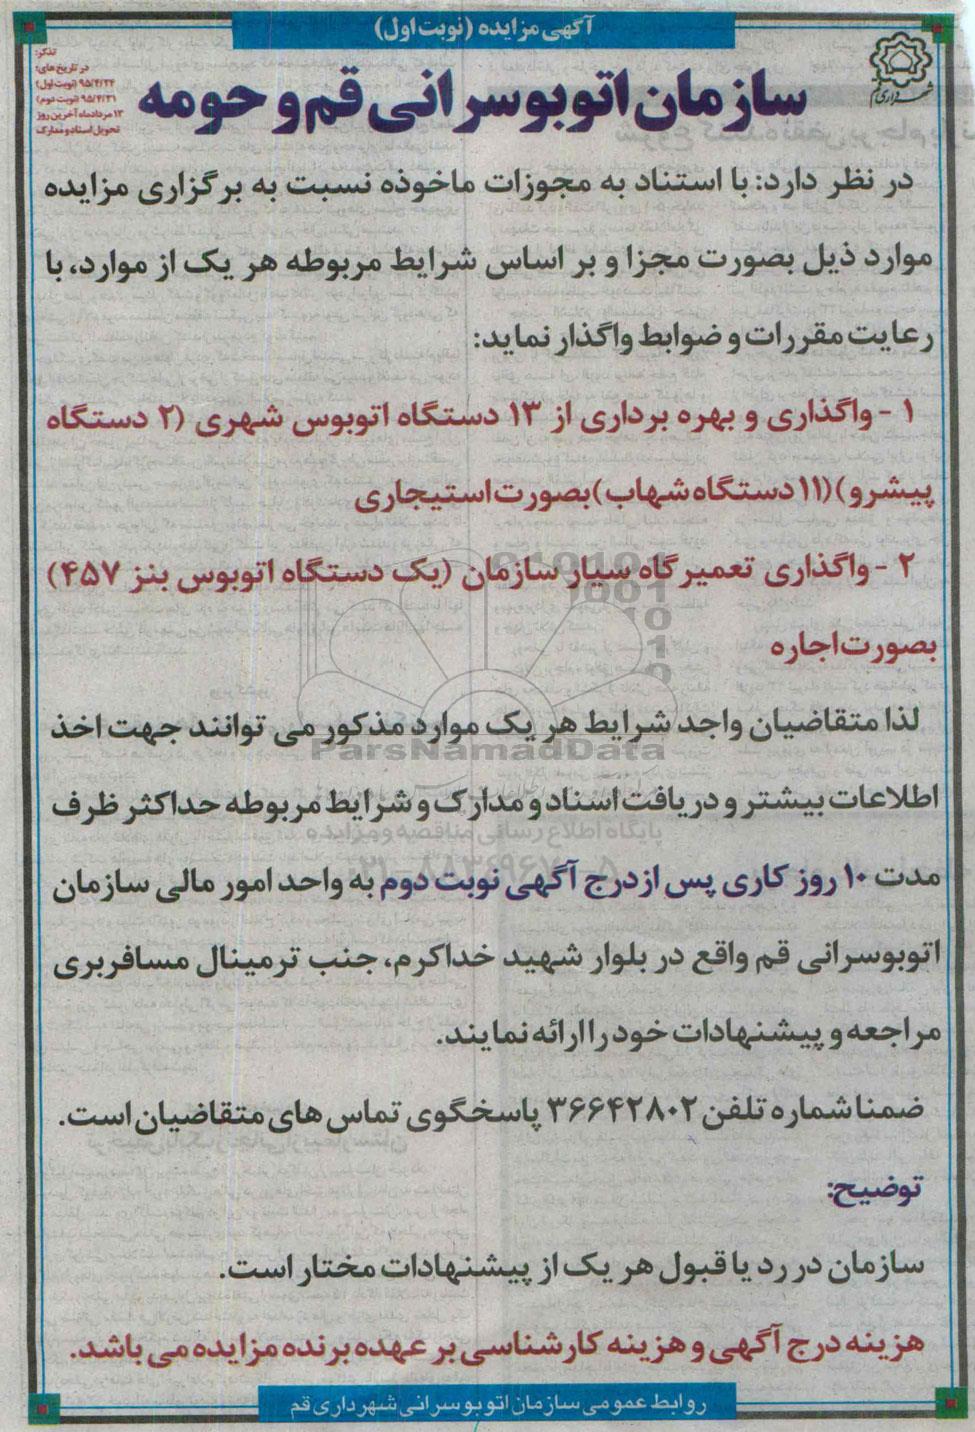 آگهی مزایده (نوبت اول)
شهرداری قم
سازمان اتوبوسرانی قم و حومه
تذکر:
در تاریخ های:
۹۵/۴/۲۴ (نوبت اول)
۹۵/۴/۳۱ (نوبت دوم)
۱۳ مرداد ماه آخرین روز
تحویل اسناد و مدارک
در نظر دارد: با استناد به مجوزات ماخوذه نسبت به برگزاری مزایده
موارد ذیل بصورت مجزا و بر اساس شرایط مربوطه هر یک از موارد، با
رعایت مقررات و ضوابط واگذار نماید:
۱ - واگذاری و بهره برداری از ۱۳ دستگاه اتوبوس شهری (۲ دستگاه
پیشرو)(۱۱ دستگاه شهاب) بصورت استیجاری
۲ - واگذاری تعمیرگاه سیار سازمان (یک دستگاه اتوبوس بنز ۴۵۷)
بصورت اجاره
لذا متقاضیان واجد شرایط هر یک موارد مذکور می توانند جهت اخذ
ParsNamadData
اطلاعات بیشتر و دریافت اسناد و مدارک و شرایط مربوطه حداکثر ظرف
پایگاه اطلاع رسانی مناقصه و مزایده
مدت ۱۰ روز کاری پس از درج آگهی نوبت دوم به واحد امور مالی سازمان
اتوبوسرانی قم واقع در بلوار شهید خداکرم، جنب ترمینال مسافربری
مراجعه و پیشنهادات خود را ارائه نمایند.
ضمنا شماره تلفن ۳۶۶۴۲۸۰۲ پاسخگوی تماس های متقاضیان است.
توضیح:
سازمان در رد یا قبول هر یک از پیشنهادات مختار است.
هزینه درج آگهی و هزینه کارشناسی بر عهده برنده مزایده می باشد.
روابط عمومی سازمان اتوبوسرانی شهرداری قم